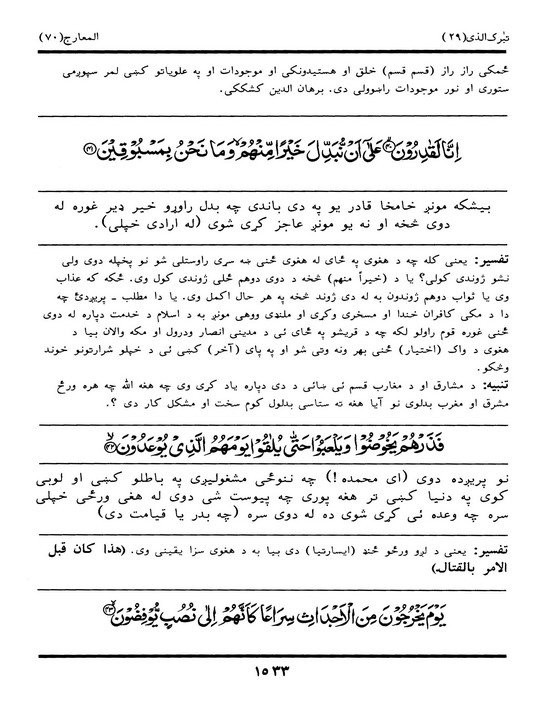 تبٰرک الذی (۲۹) المعارج (۷۰)
ځمکې راز راز (قسم قسم) خلق او هستیدونکې او موجودات او په علویاتو کښې لمر سپوږمۍ
ستوري او نور موجودات راښوولې دي. برهان الدین کشککی.
اِنَّا لَقٰدِرُوْنَ ﴿۴۰﴾ عَلٰٓى اَنْ نُّبَدِّلَ خَيْرًا مِّنْهُمْ ۙ وَمَا نَحْنُ بِمَسْبُوْقِيْنَ ﴿۴۱﴾
بیشکه مونږ خامخا قادر یو په دې باندې چه بدل راوړو خیر ډیر غوره له
دوی څخه او نه یو مونږ عاجز کړي شوي (له ارادې خپلې).
تفسیر: یعنې کله چه د هغوی په ځای له هغوی ځنې ښه سړي راوستلی شو نو پخپله دوی ولې
نشو ژوندي کولی؟ یا د (خیراً منهم) څخه د دوی دوهم ځلې ژوندي کول وي. ځکه که عذاب
وي یا ثواب دوهم ژوندون به له دې ژوند څخه په هر حال اکمل وي. یا دا مطلب ـ پریږدئ چه
دا د مکې کافران خندا او مسخرې وکړي او ملنډې ووهي مونږ به د اسلام د خدمت دپاره له دوی
ځنې غوره قوم راولو لکه چه د قریشو په ځای ئې د مدینې انصار ودرول او مکه والان بیا د
هغوی د واک (اختیار) ځنې بهر ونه وتی شو او په پای (آخر) کښې ئې د خپلو شرارتونو خوند
وڅکو.
تنبیه: د مشارق او د مغارب قسم ئې ښائی د دې دپاره یاد کړی وي چه هغه الله چه هره ورځ
مشرق او مغرب بدلوي نو آیا هغه ته ستاسې بدلول کوم سخت او مشکل کار دی ؟.
فَذَرْهُمْ يَخُوْضُوْا وَيَلْعَبُوْا حَتّٰى يُلٰقُوْا يَوْمَهُمُ الَّذِىْ يُوْعَدُوْنَ ﴿۴۲﴾
نو پریږده دوی (ای محمده!) چه ننوځي مشغولیږي په باطلو کښې او لوبې
کوي په دنیا کښې تر هغه پورې چه پیوست شي دوی له هغې ورځې خپلې
سره چه وعده ئې کړې شوې ده له دوی سره (چه بدر یا قیامت دی)
تفسیر: یعنې د لږو ورځو ځنډ (ایسارتیا) دی بیا به د هغوی سزا یقیني وي. (هذا کان قبل
الامر بالقتال)
يَوْمَ يَخْرُجُوْنَ مِنَ الْاَجْدَاثِ سِرَاعًا كَاَنَّهُمْ اِلٰى نُصُبٍ يُّوْفِضُوْنَ ﴿۴۳﴾
۱۵۳۳